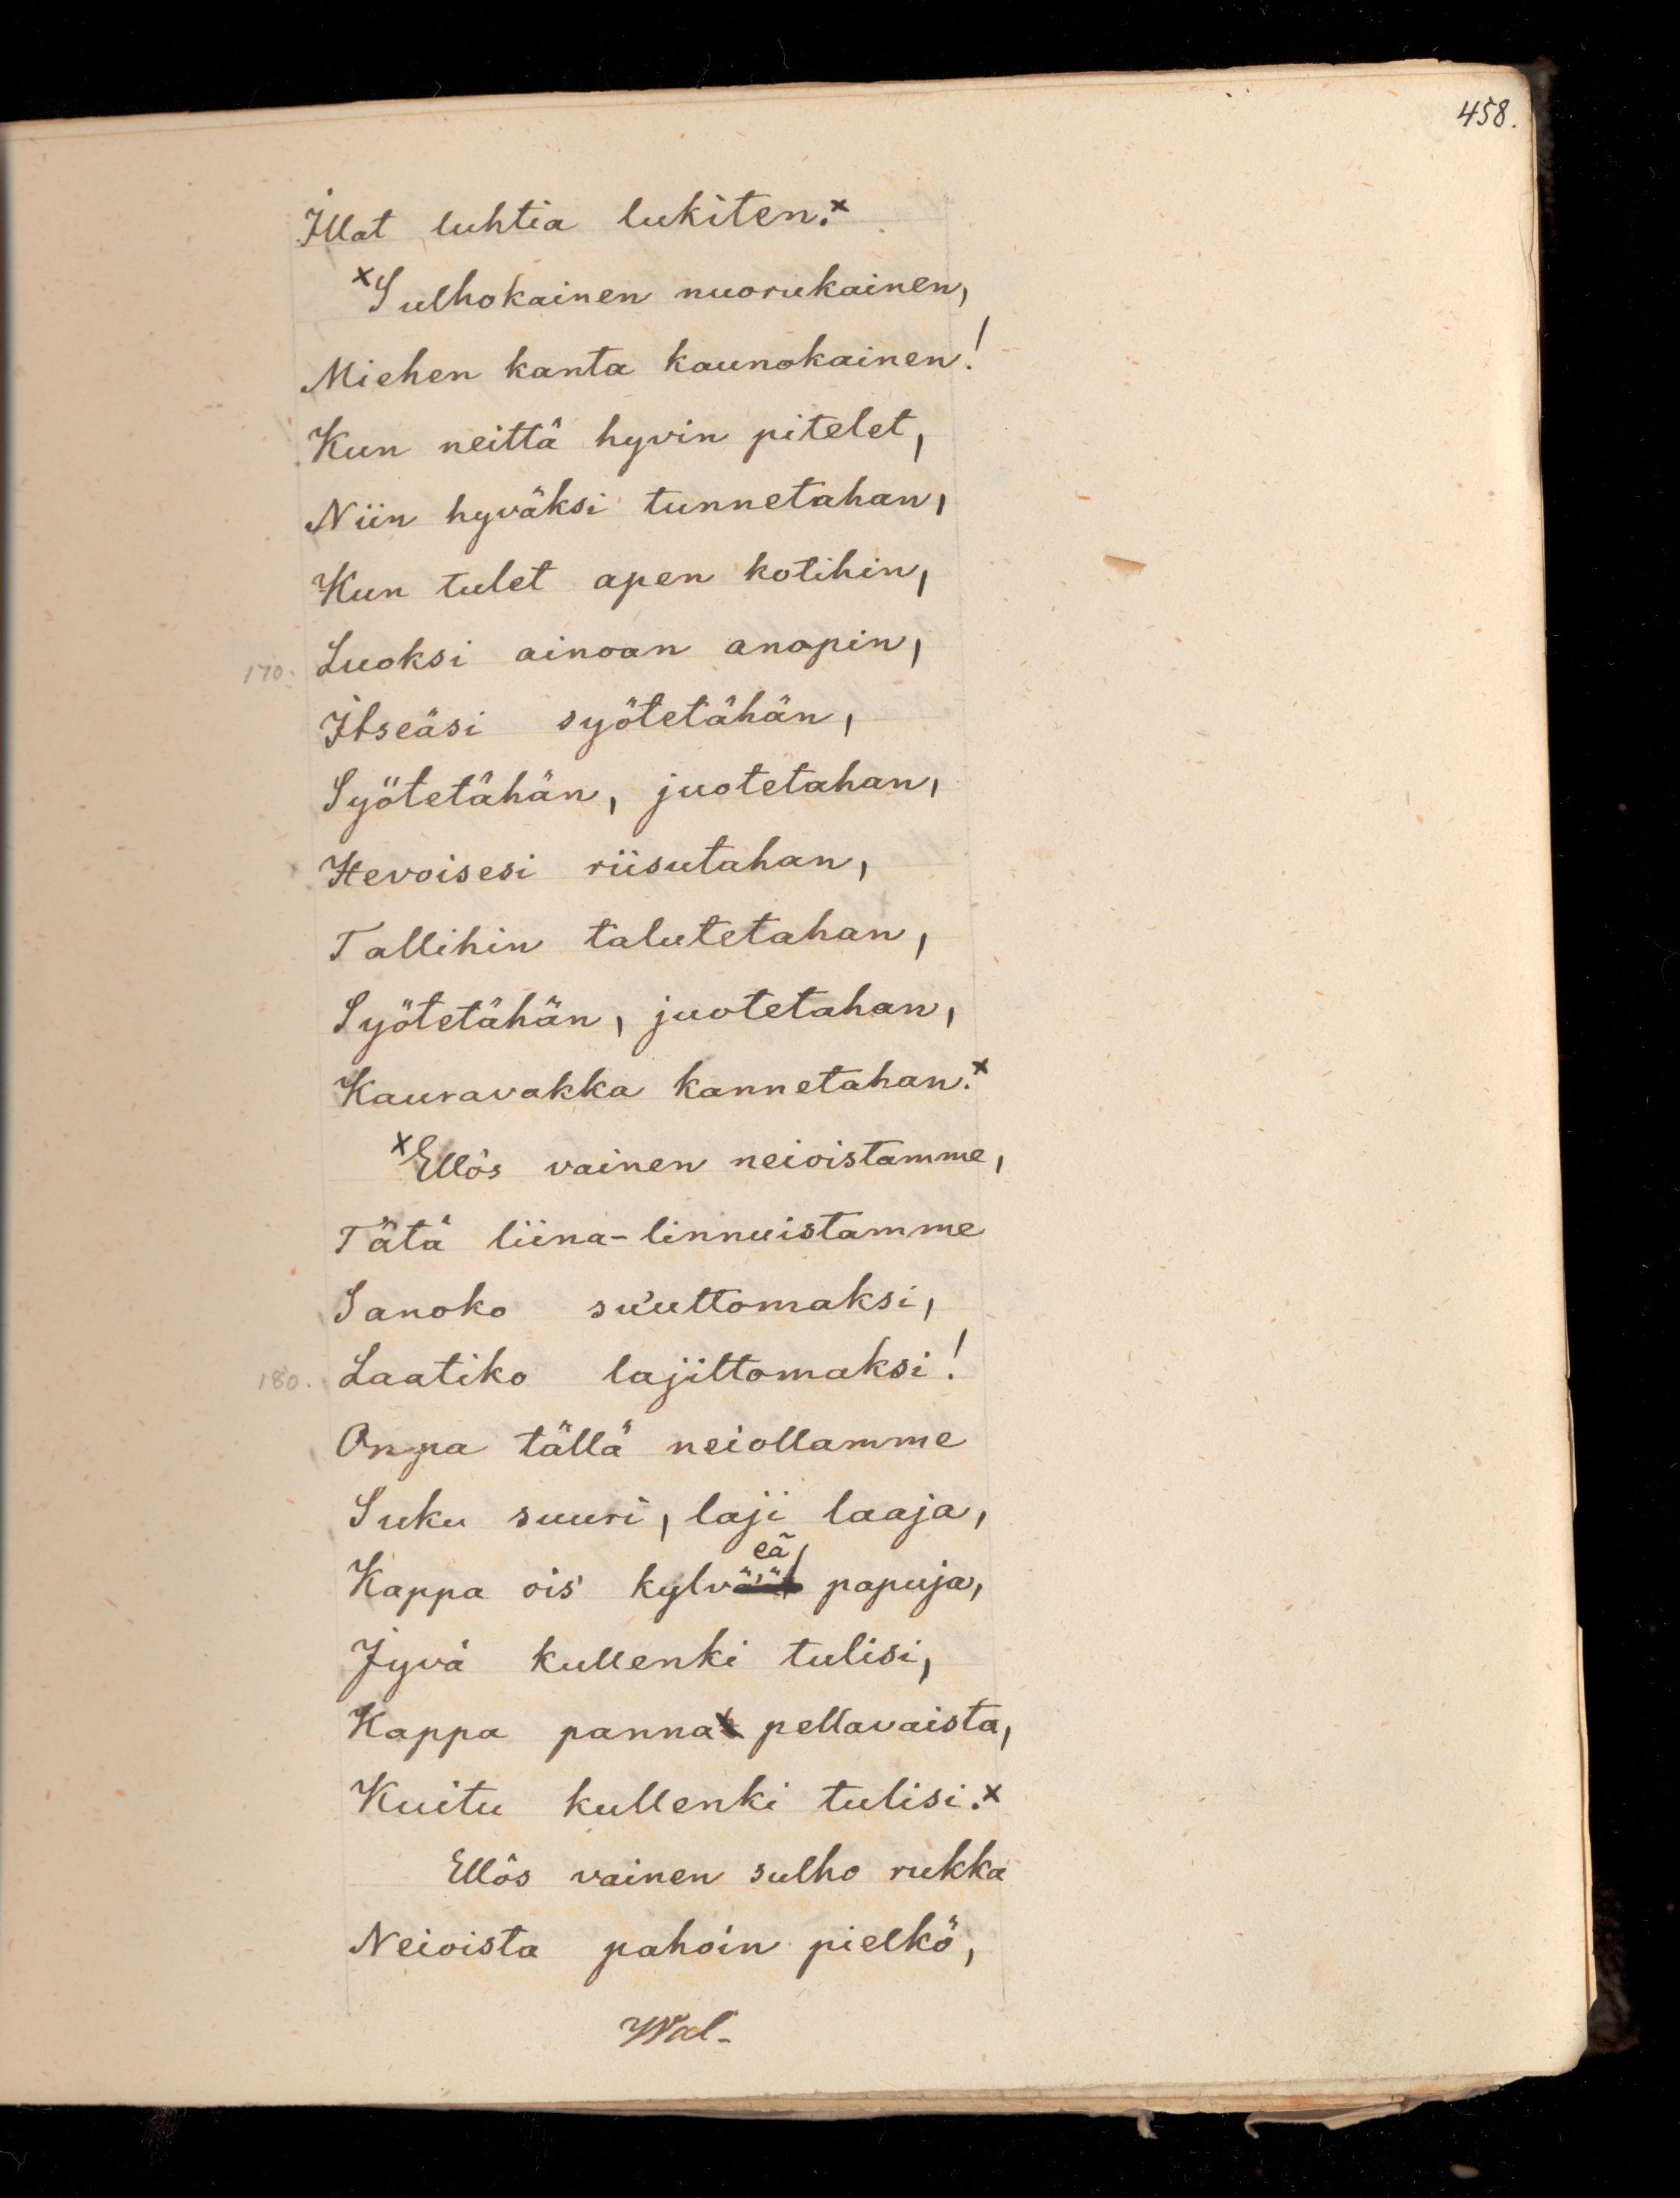 458.
Illat luhtia lukiten.x
xSulhokainen nuorukainen,
Miehen kanta kaunokainen!
Kun neittä hyvin pitelet,
Niin hyväksi tunnetahan,
Kun tulet apen kotihin,
170. Luoksi ainoan anopin,
Itseäsi syötetähän,
Syötetähän, juotetahan,
Hevoisesi riisutahan,
Tallihin talutetahan,
Syötetähän, juotetahan,
Kauravakka kannetahan.x
xEllös vainen neioistamme,
Tätä liina-linnuistamme
Sanoko su'uttomaksi,
180. Laatiko lajittomaksi!
Onpa tällä neiollamme
Suku suuri, laji laaja,
Kappa ois kylveä papuja,
Jyvä kullenki tulisi,
Kappa panna pellavaista,
Kuitu kullenki tulisi.x
Ellös vainen sulho rukka
Neioista pahoin pielkö,
Wal-